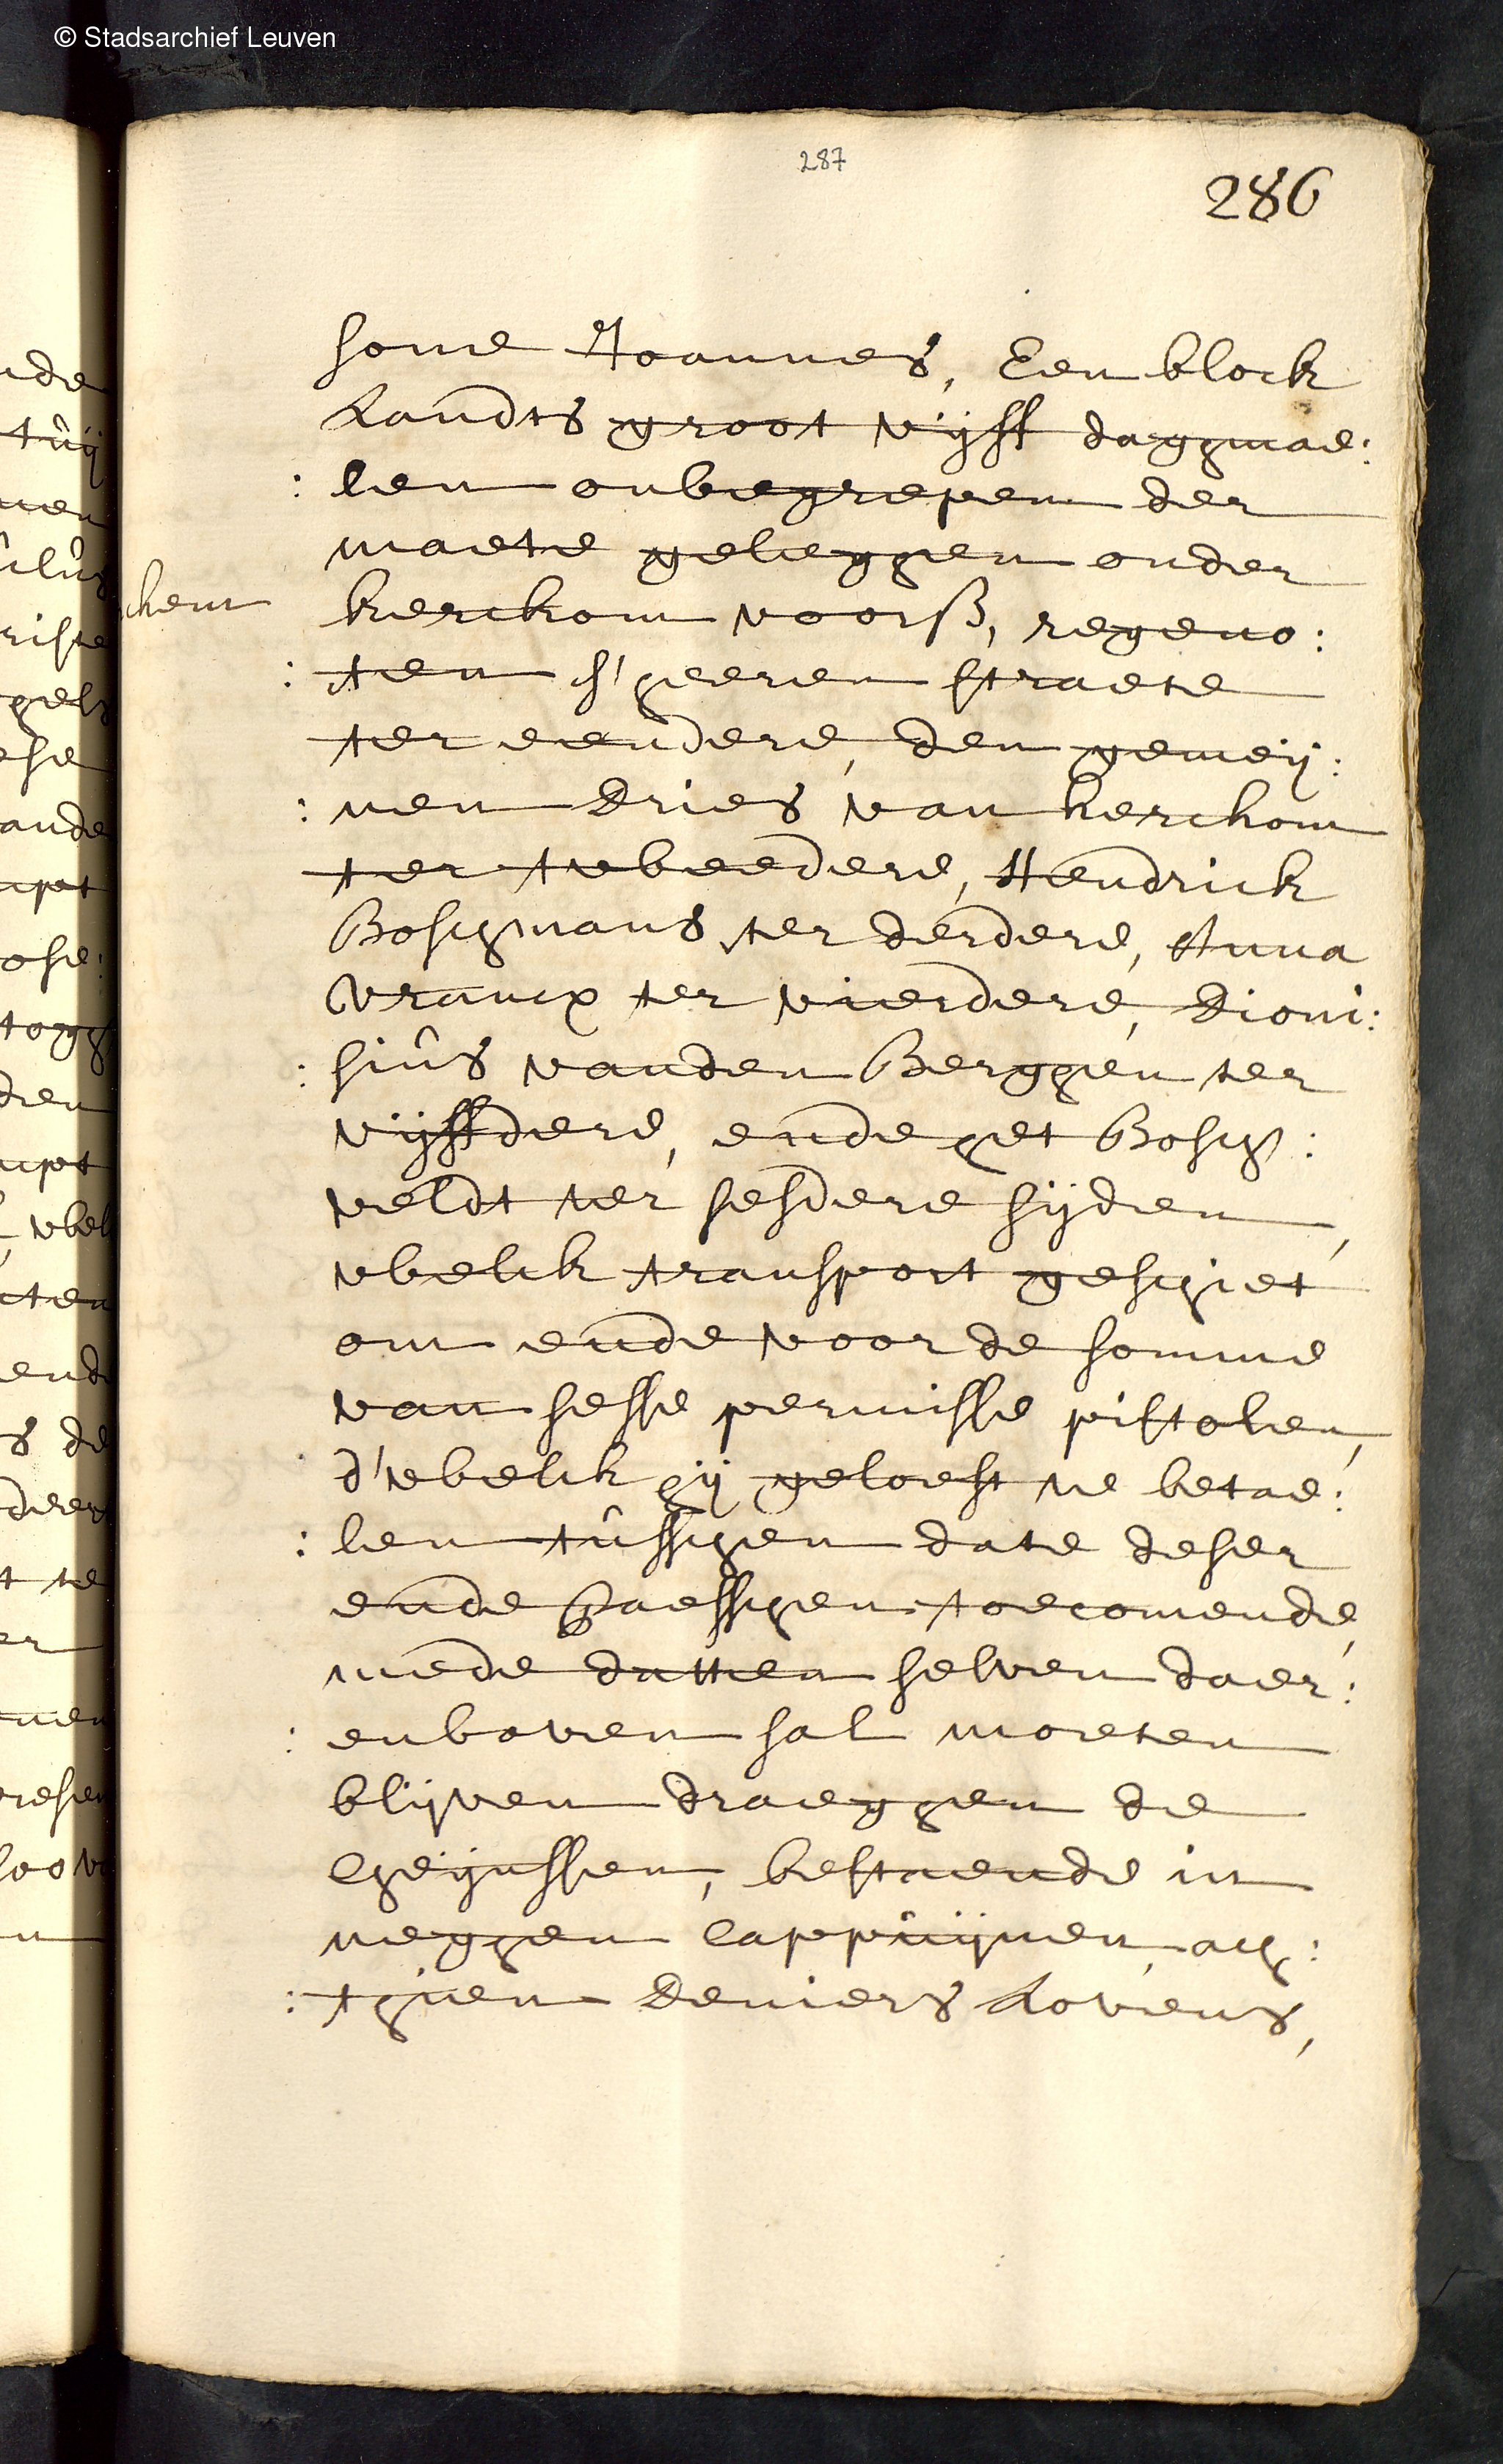 © Stadsarchief Leuven
287
286
sone Joannes, Een block
Landts groot vijff daghmae:
: len onbegrepen der
maete geleghen onder
kerckom voorß, regeno:
: ten s'heeren straete
ter eendere, den gemeij:
: nen Dries van kerckom
ter tweedere, Hendrick
Boschmans ter derdere, Anna
Vrancx ter vierdere, Dioni:
: sius vanden Berghen ter
vijffdere, ende het Bosch:
veldt ter sesdere sijden,
welck transport geschiet
om ende voor de somme
van sesse permisse pistolen,
d'welck hij gelooft te betae:
: len tusschen date deser
ende Paesschen toecomende,
mede datten selven daer:
: enboven sal moeten
blijven draeghen de
Cheijnssen, bestaende in
neghen Cappuijnen, ach:
: thien Deniers Lovens,